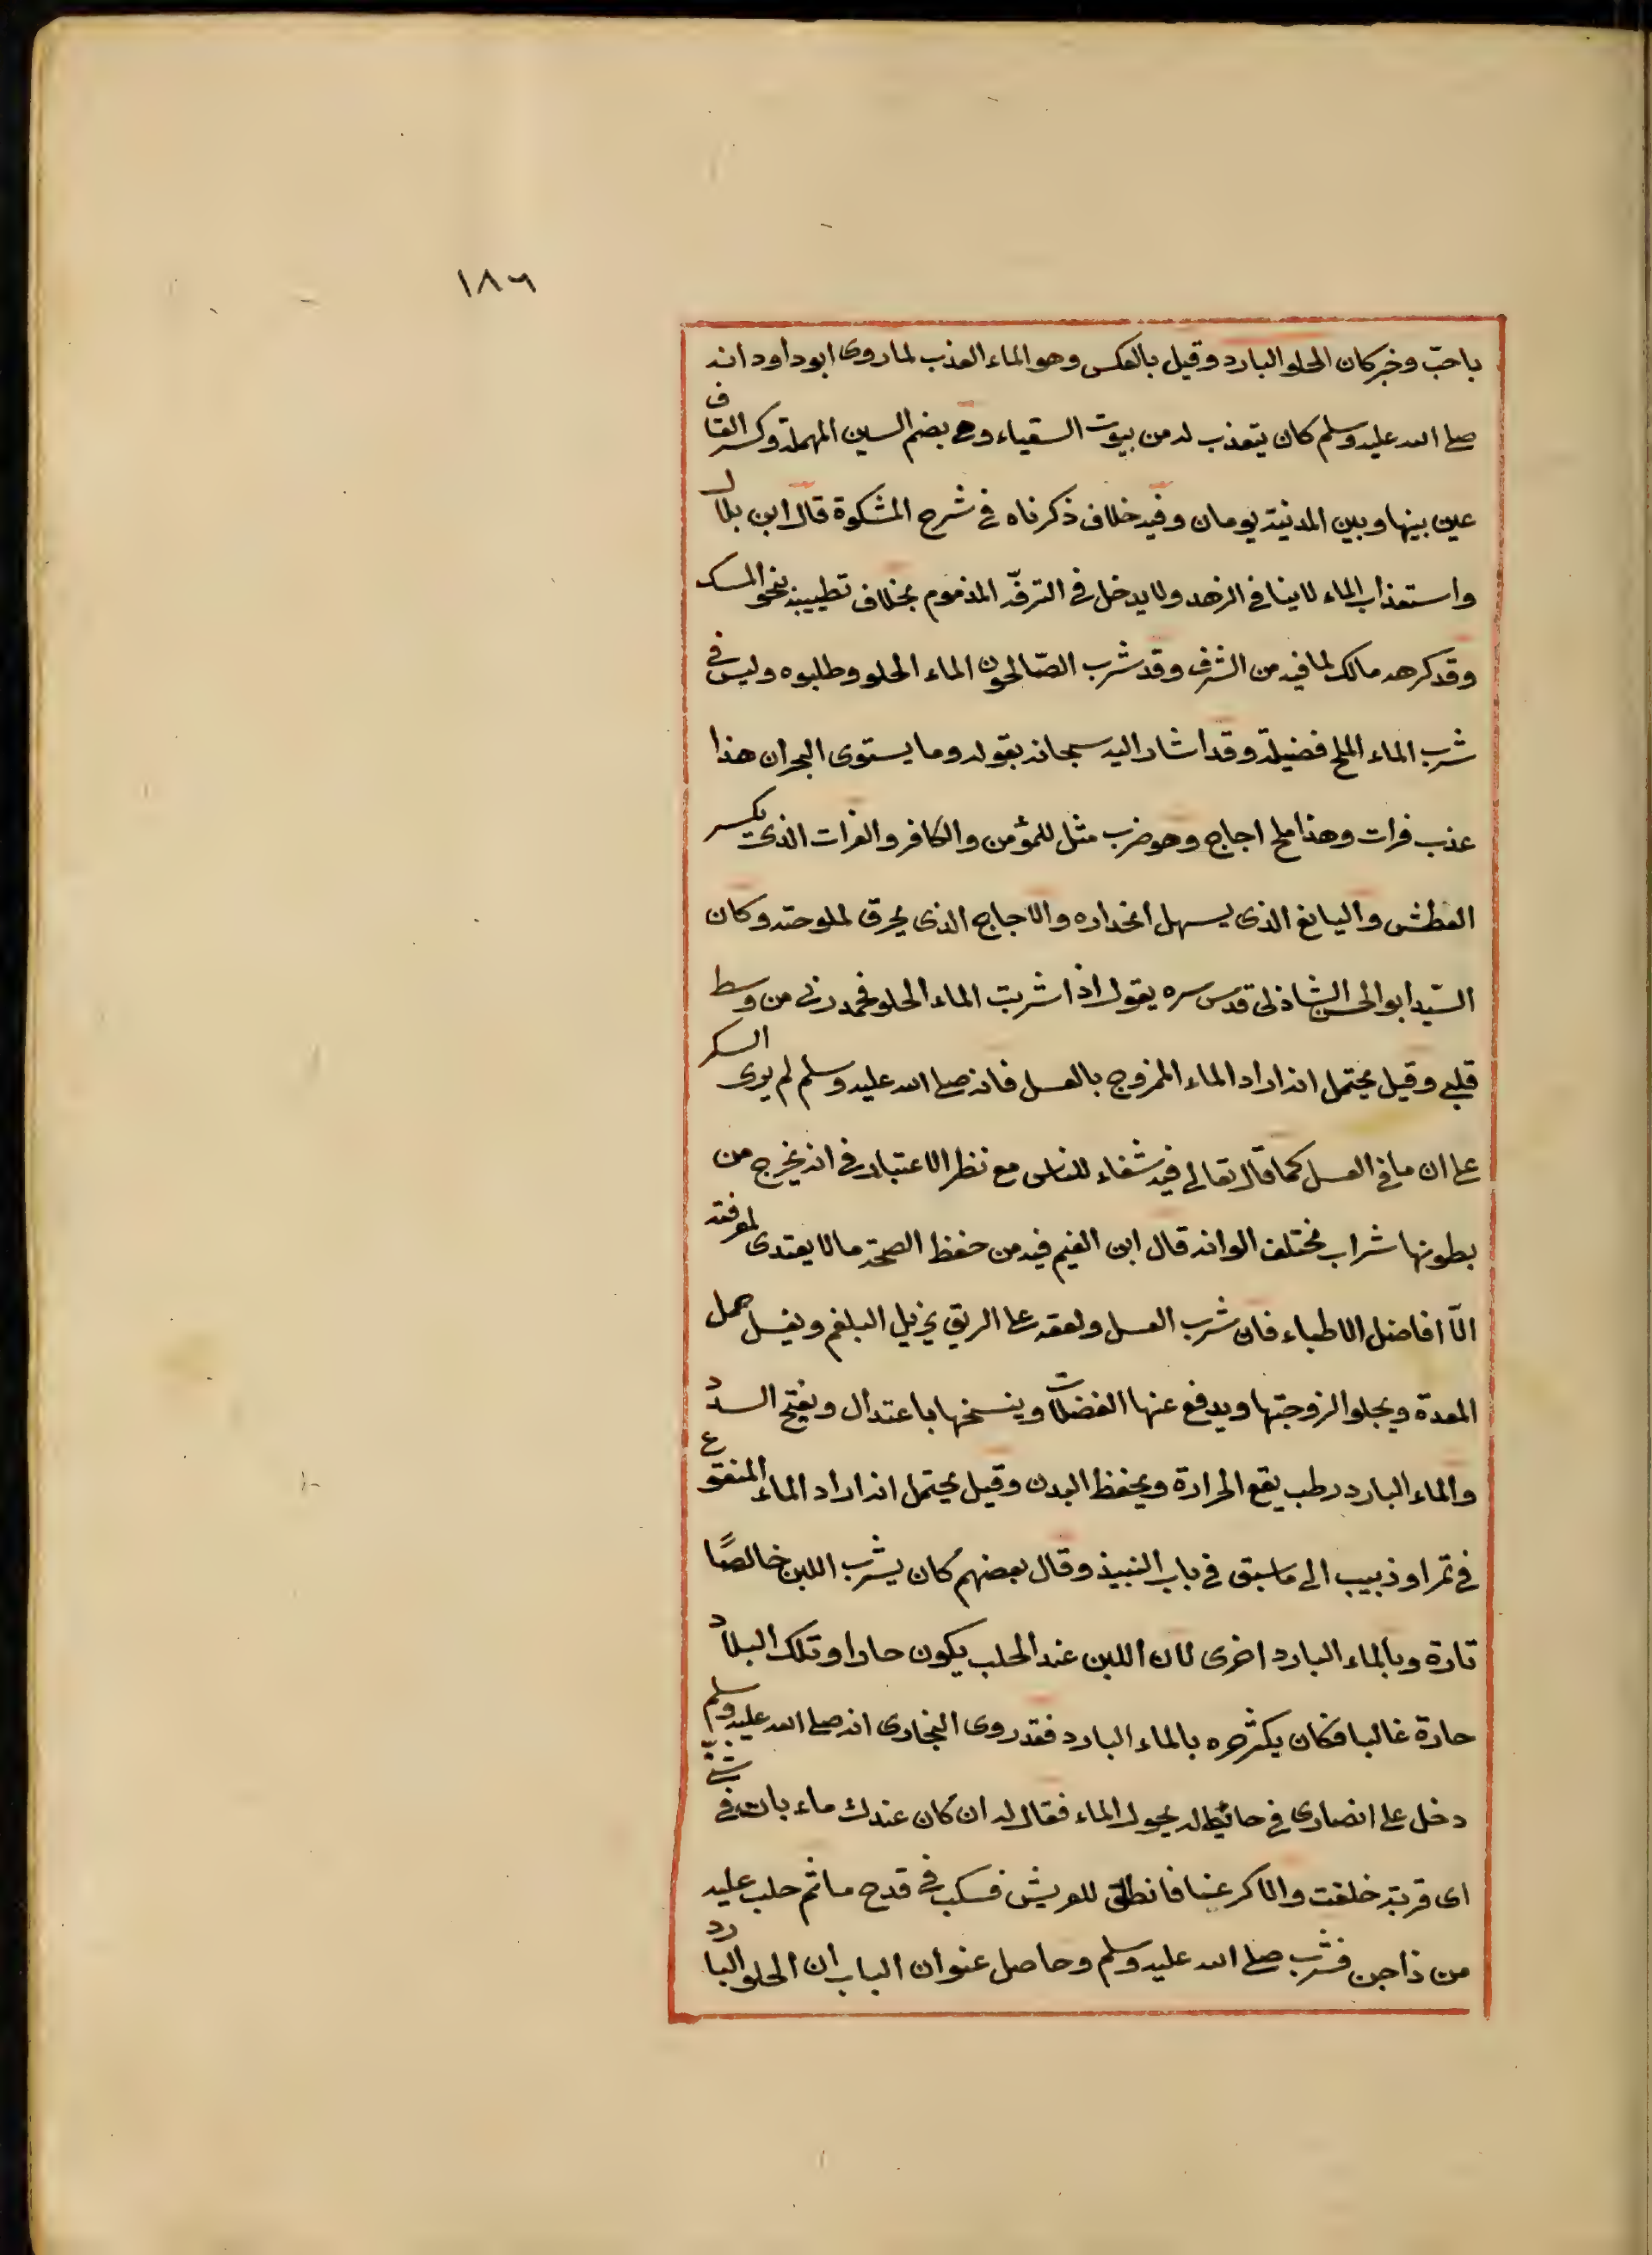 ١٨٦
باحبّ وخبر كان الحلو البارد وقيل بالعكس وهو الماء العذب لما روى ابو داود انه
صلى الله عليه وسلم كان يتعذب له من بيوت السقياء وهى بضم السين المهملة وكسر القاف
عين بينها وبين المدنية يومان وفيه خلاف ذكرناه فى شرح المشكوة قال ابن بلال
واستعذاب الماء لاينافى الزهد ولا يدخل فى الترفّه المذموم بخلاف تطييبه بنحو المسك
وقد كرهه مالك لما فيه من الشرف وقد شرب الصّالحون الماء الحلو وطلبوه وليس فى
شرب الماء الملح فضيلة وقد اشار اليه سبحانه بقوله وما يستوى البحران هذا
عذب فرات وهذا ملح اجاج وهو ضرب مثل للمؤمن والكافر والفرات الذى يكسر
العطش واليانع الذى يسهل انحداره والاجاج الذى يحرق لملوحته وكان
السّيد ابو الحسن الشاذلى قدس سره يقول اذا شربت الماء الحلو فحمد ربى من وسط
قلبى وقيل يحتمل انه اراد الماء الممزوج بالعسل فانه صلى الله عليه وسلم لم يرى السكر
على ان ما فى العسل كما قال تعالى فيه شفاء للناس مع نظر الاعتبار فى انه يخرج من
بطونها شراب مختلف الوانه قال ابن القيم فيه من حفظ الصحة مالا يهتدى لمعرفته
الّا افاضل الاطباء فان شرب العسل ولعقه على الريق يزيل البلغم ويغسل حمل
المعدة ويجلو الزوجتها ويدفع عنها الفضلات وينسخها باعتدال ويفتح السدد
والماء البارد رطب يقع الحرارة ويحفظ البدن وقيل يحتمل انه اراد الماء المنقوع
فى تمر او ذبيب الى ما سبق فى باب النبيذ وقال بعضهم كان يشرب اللبن خالصًا
تارة وبالماء البارد اخرى لان اللبن عند الحلب يكون حارا وتلك البلاد
حارة غالبا فكان يكثر حره بالماء البارد فقد روى البخارى انه صلى الله عليه وسلم
دخل على انصارى فى حائط له يحول الماء فقال له ان كان عندك ماء بات فى شنّ
اى قربة خلقت والا كرعنا فانطلق للعريش فسكب فى قدح ما ثم حلب عليه
من ذاجن فشرب صلى الله عليه وسلم وحاصل عنوان الباب ان الحلو البارد